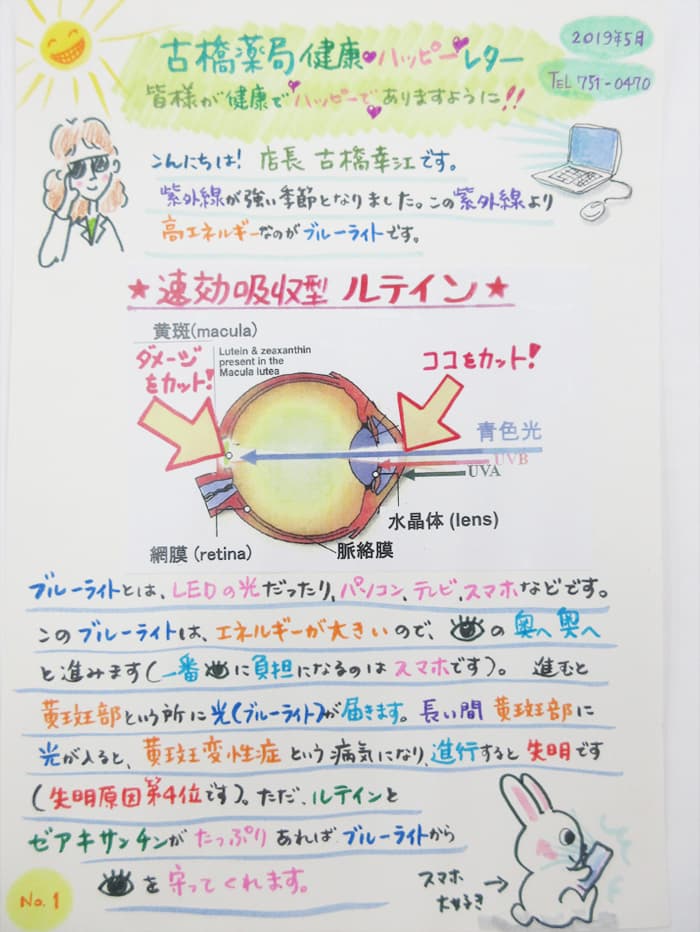 古橋薬局健康ハッピーレター
2019年5月
TEL 751-0470
皆様が健康でハッピーでありますように!!
こんにちは! 店長 古橋幸江です。
紫外線が強い季節となりました。この紫外線より
高エネルギーなのがブルーライトです。
★速効吸収型 ルテイン★
黄斑(macula)
Lutein & zeaxanthin
present in the
Macula lutea
ダメージ
をカット!
ココをカット!
青色光
UVB
UVA
水晶体 (lens)
網膜 (retina)
脈絡膜
ブルーライトとは、LEDの光だったり、パソコン、テレビ、スマホなどです。
このブルーライトは、エネルギーが大きいので、の奥へ奥へ
と進みます(一番に負担になるのはスマホです)。 進むと
黄斑部という所に光(ブルーライト)が届きます。長い間 黄斑部に
光が入ると、黄斑変性症という病気になり、進行すると失明です
(失明原因第4位です)。ただ、ルテインと
ゼアキサンチンがたっぷりあればブルーライトから
を守ってくれます。
スマホ
大好き
No.1